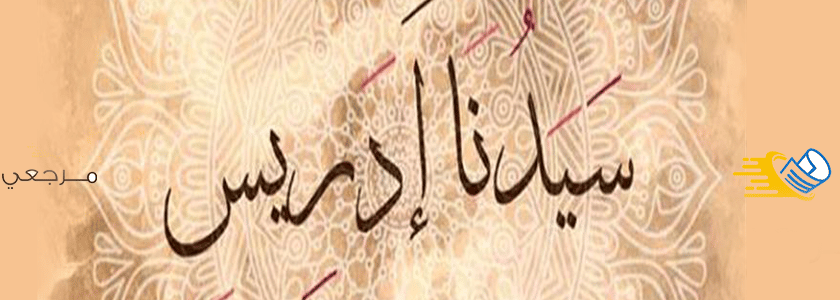 سَيَدُنَا إِدَريس
مرجعي